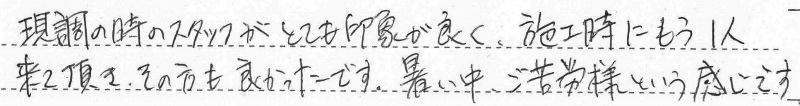 現調の時のスタッフがとても印象が良く、施工時にもう1人
来て頂き、その方も良かったです。暑い中、ご苦労様という感じです